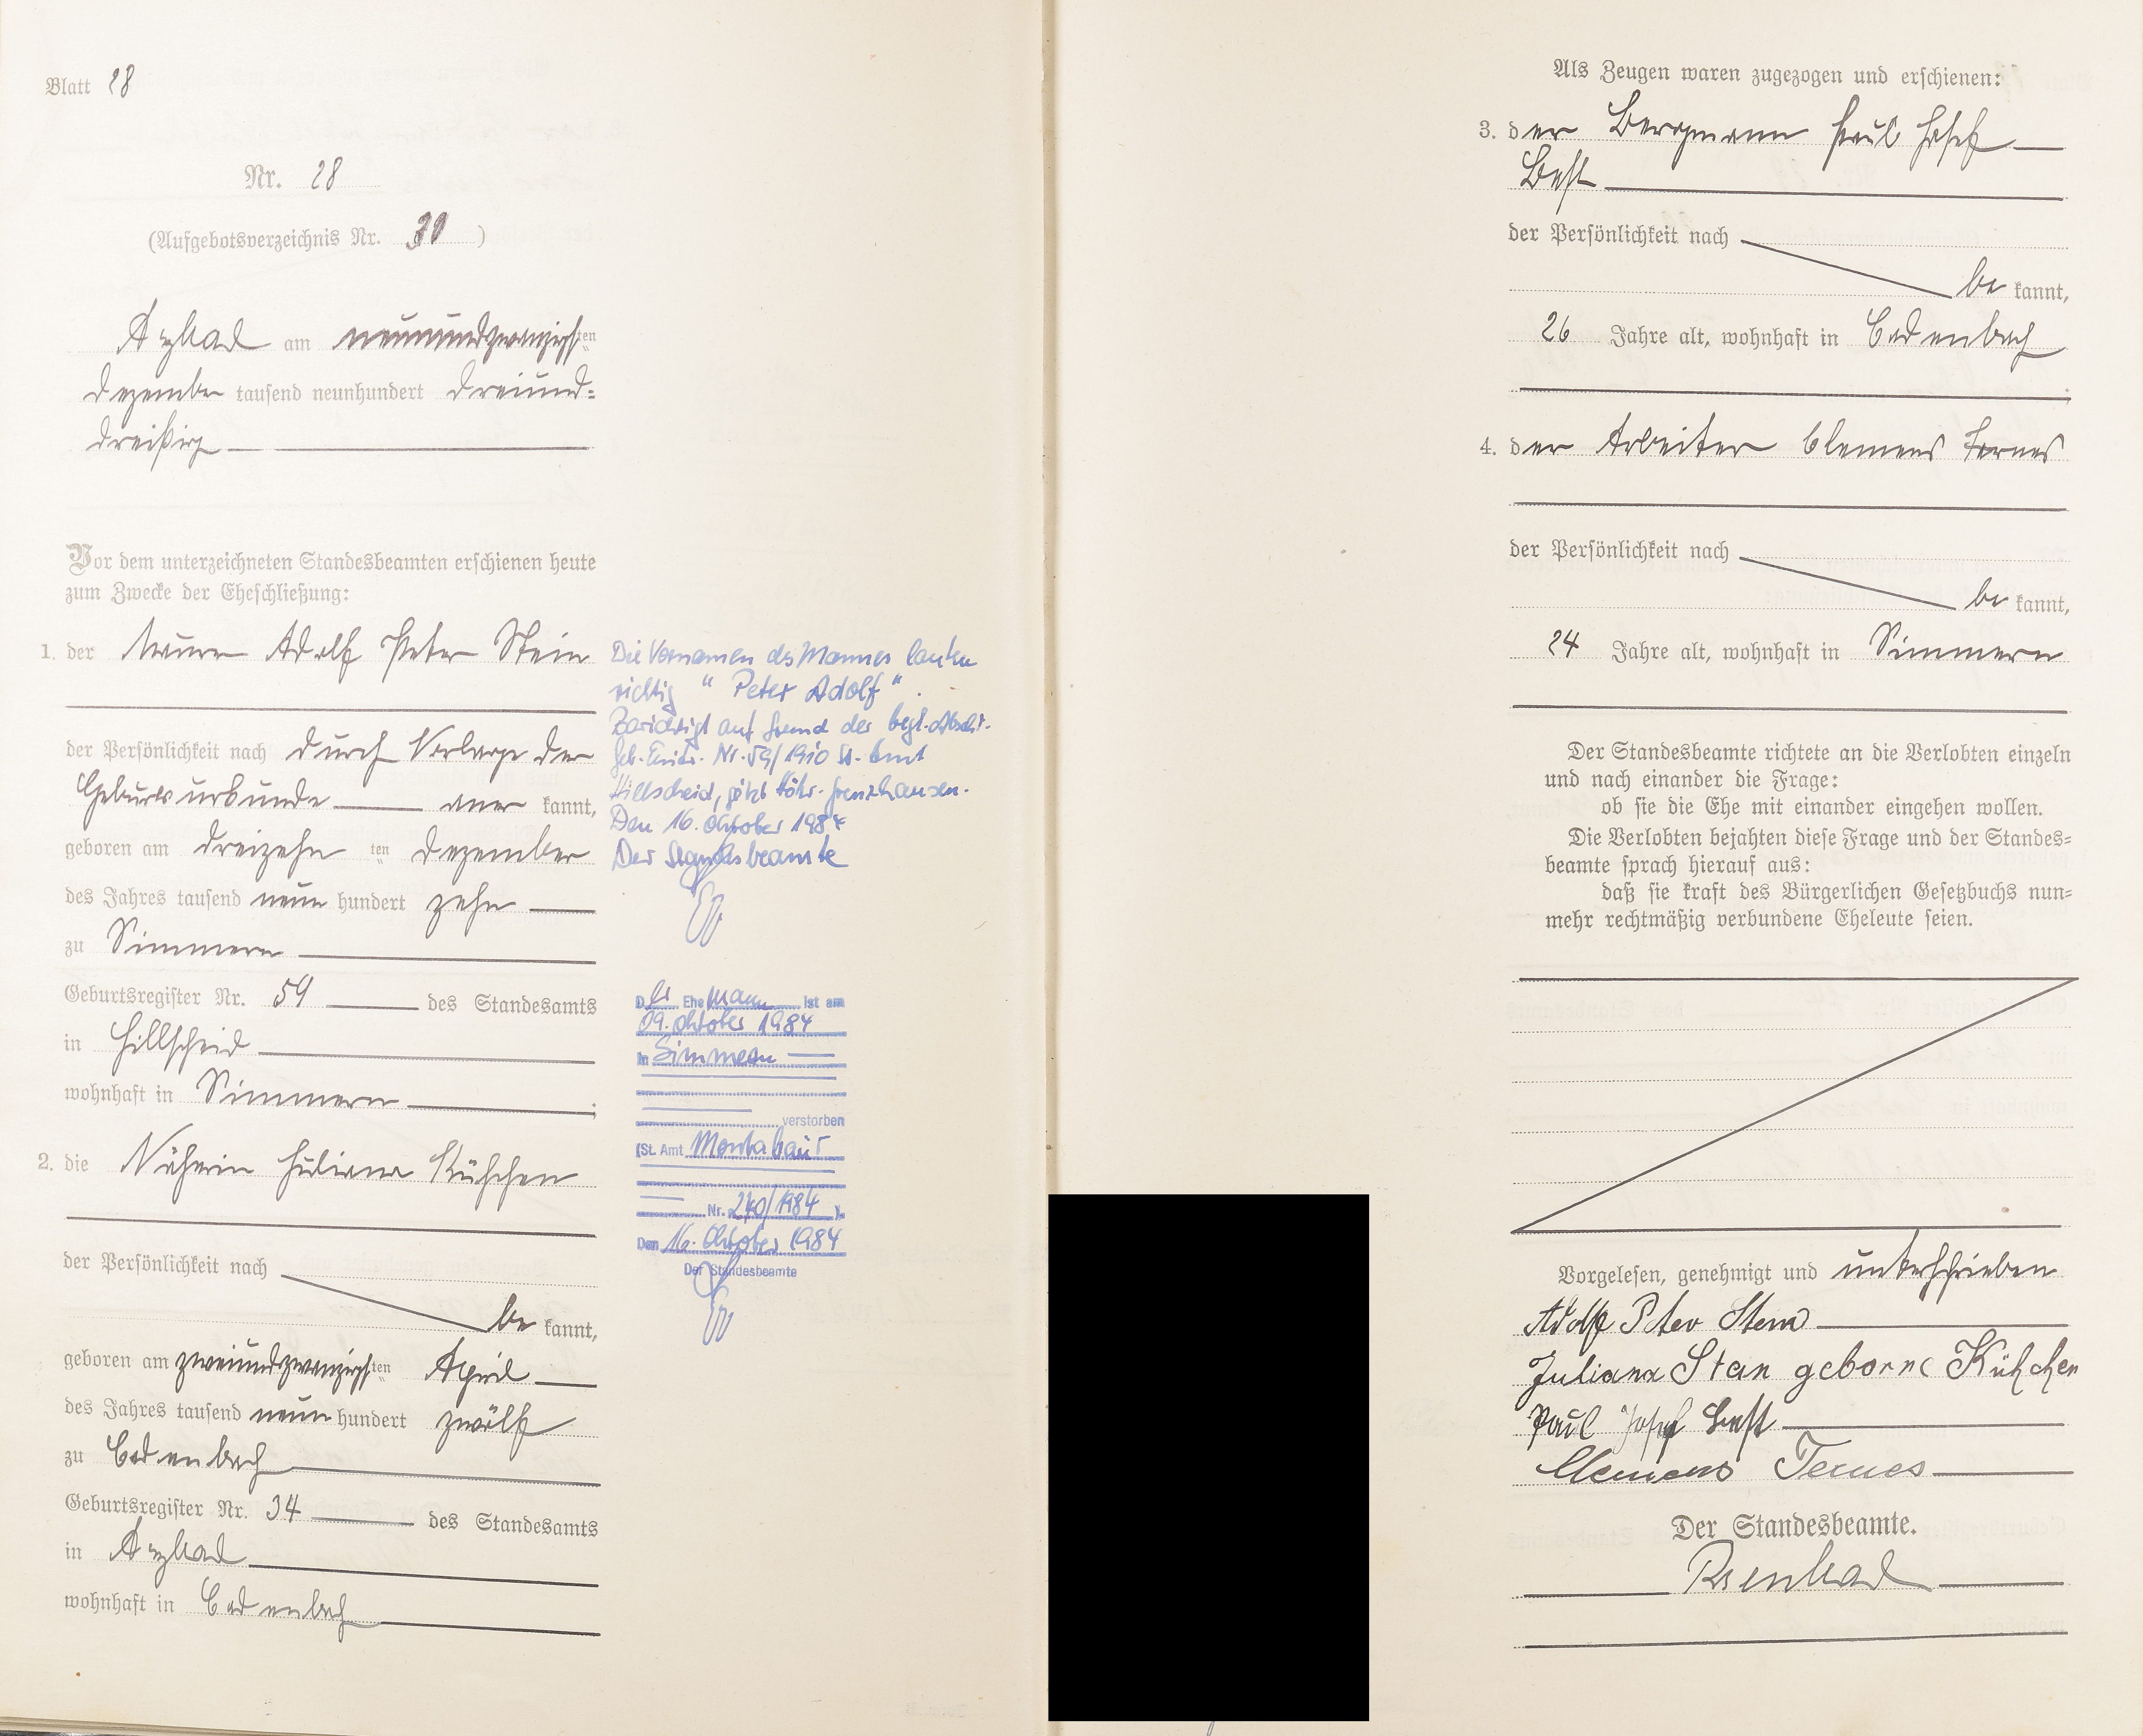 Blatt 28
Nr. 28
(Aufgebotsverzeichnis Nr. 30)
Arzbach am neunundzwanzigsten
Dezember tausend neunhundert dreiund=
dreißig
Vor dem unterzeichneten Standesbeamten erschienen heute
zum Zwecke der Eheschließung:
1. der Maurer Adolf Peter Stein
der Persönlichkeit nach durch Vorlage der
Geburtsurkunde aner kannt,
geboren am dreizehn ten Dezember
des Jahres tausend neun hundert zehn
zu Simmern
Geburtsregister Nr. 59 des Standesamts
in Hillscheid
wohnhaft in Simmern;
2. die Näherin Juliana Kühchen
der Persönlichkeit nach
be kannt,
geboren am zweiundzwanzigsten April
des Jahres tausend neun hundert zwölf
zu Cadenbach
Geburtsregister Nr. 34 des Standesamts
in Arzbach
wohnhaft in Cadenbach
Die Vornamen des Mannes lauten
richtig "Peter Adolf".
Berichtigt auf Grund der begl. Abschr.
Geb. Eintr. Nr. 59/1910 St. Amt
Hillscheid, jetzt Höhr-Grenzhausen.
Den 16. Oktober 1984
Der Standesbeamte
Der Ehemann ist am
09. Oktober 1984
in Simmern
verstorben
(St. Amt Montabaur
Nr. 240/1984).
Den 16. Oktober 1984
Der Standesbeamte
Als Zeugen waren zugezogen und erschienen:
3. der Bergmann Paul Josef
Best
der Persönlichkeit nach
be kannt,
26 Jahre alt, wohnhaft in Cadenbach
4. der Arbeiter Clemens Ternes
der Persönlichkeit nach
be kannt,
24 Jahre alt, wohnhaft in Simmern
Der Standesbeamte richtete an die Verlobten einzeln
und nach einander die Frage:
ob sie die Ehe mit einander eingehen wollen.
Die Verlobten bejahten diese Frage und der Standes=
beamte sprach hierauf aus:
daß sie kraft des Bürgerlichen Gesetzbuchs nun=
mehr rechtmäßig verbundene Eheleute seien.
Vorgelesen, genehmigt und unterschrieben
Adolf Peter Stein
Juliana Stein geborne Kühchen
Paul Josef Best
Clemens Ternes
Der Standesbeamte.